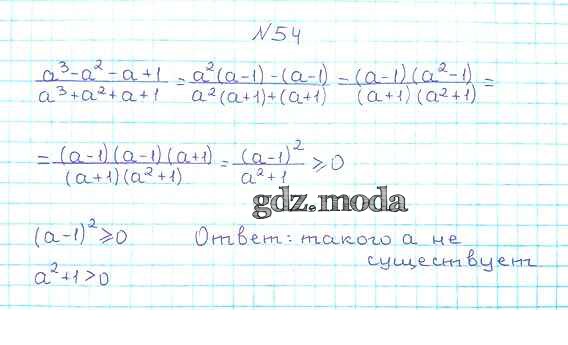 N54
a³-a²-a+1 / a³+a²+a+1 = a²(a-1)-(a-1) / a²(a+1)+(a+1) = (a-1)(a²-1) / (a+1)(a²+1) =
= (a-1)(a-1)(a+1) / (a+1)(a²+1) = (a-1)² / a²+1 ⩾0
gdz.moda
(a-1)²⩾0 Ответ: такого а не
существует
a²+1>0